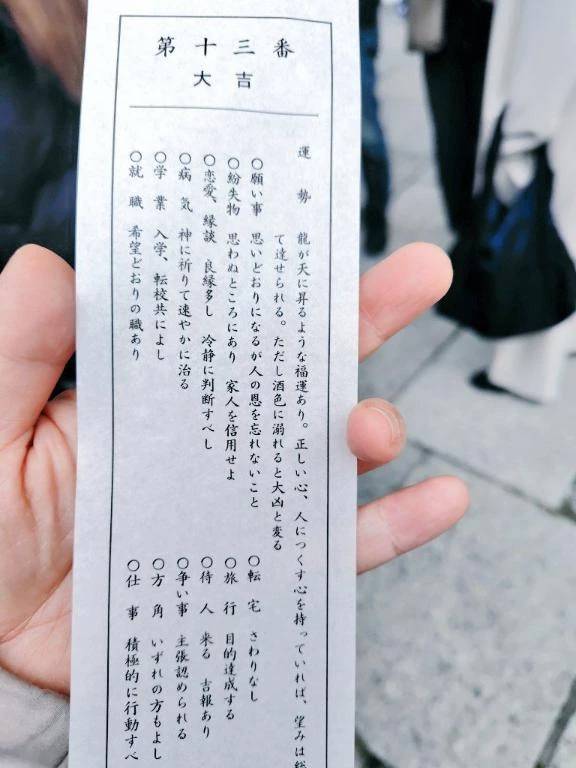 第十三番
大吉
運勢 龍が天に昇るような福運あり。正しい心、人につくす心を持っていれば、望みは総
て達せられる。ただし酒色に溺れると大凶と変る
〇願い事 思いどおりになるが人の恩を忘れないこと
〇紛失物 思わぬところにあり 家人を信用せよ
〇恋愛、縁談 良縁多し 冷静に判断すべし
〇病気 神に祈りて速やかに治る
〇学業 入学、転校共によし
〇就職 希望どおりの職あり
〇転宅 さわりなし
〇旅行 目的達成する
〇待人 来る 吉報あり
〇争い事 主張認められる
〇方角 いずれの方もよし
〇仕事 積極的に行動すべ